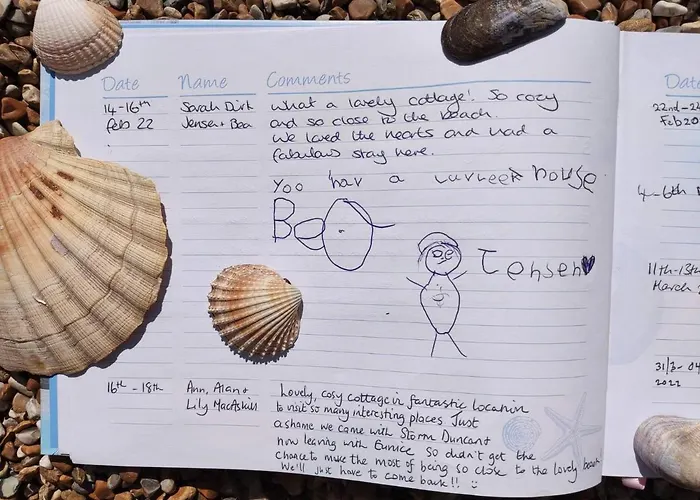 Date Name Comments
14-16th Sarah Dirk What a lovely cottage! So cozy
feb 22 Jensen + Bea and so close to the beach.
We loved the hearts and had a
fabulous stay here.
Yoo hav a house
Bea
Jensen
16th - 18th Ann, Alan + Lovely, cosy cottage in fantastic location
Lily MacAskill to visit so many interesting places Just
a shame we came with Storm Duncan +
now leaving with Eunice so didn't get the
chance to make the most of being so close to the lovely beach
We'll just have to come back!!
Date
22nd-2
Feb 20
4-6th
11th-13th
March
31/3-04
2022